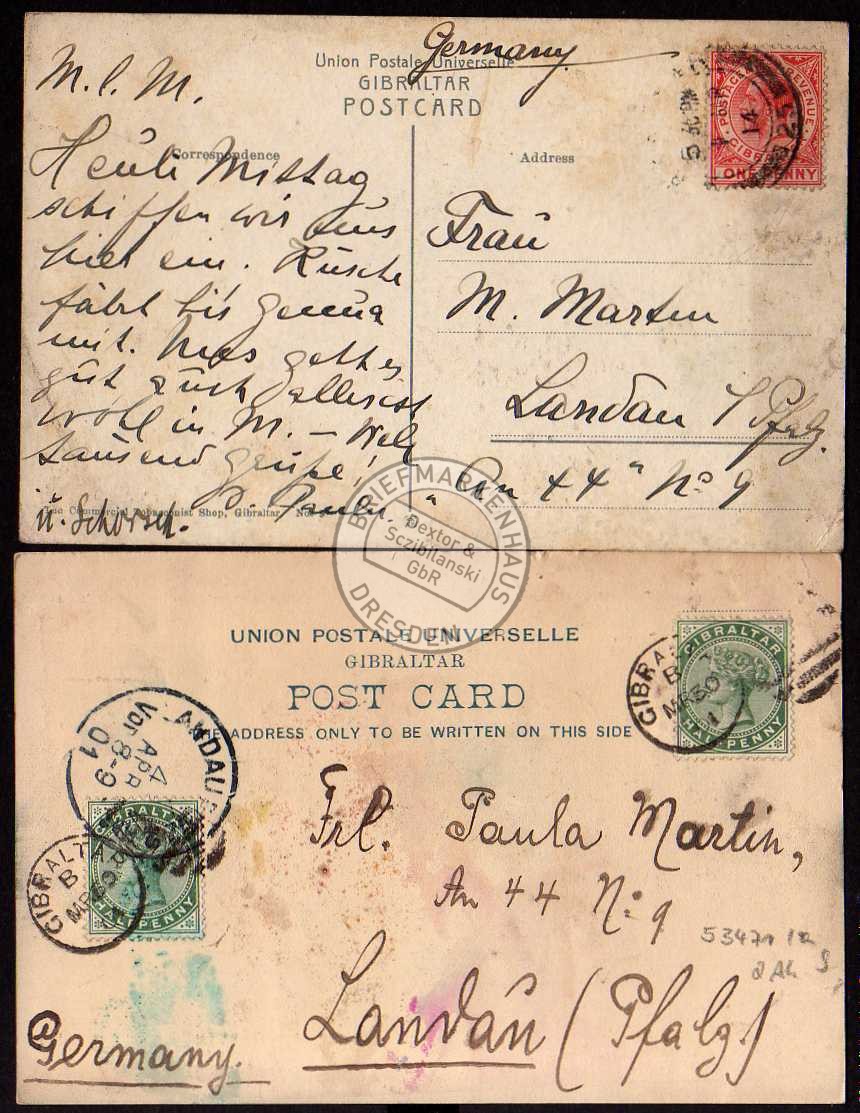 Germany.
Union Postale Universelle
GIBRALTAR
POSTCARD
M. l. M.
Correspondence
Address
Heute Mittag
schiffen wir uns
hier ein.
fährt bis Genua
mit. Uns geht es
gut auch alles ist
wohl in M. –
tausend Grüße!
Paula.
u. Schorsch.
Tobacconist Shop, Gibraltar
Frau
M. Martin
Landau / Pfalz.
"An 44" No 9
POSTAGE & REVENUE
ONE PENNY
BRIEFMARKENHAUS
Dextor &
Sczibilanski
GbR
DRESDEN
UNION POSTALE UNIVERSELLE
GIBRALTAR
POST CARD
THE ADDRESS ONLY TO BE WRITTEN ON THIS SIDE
GIBRALTAR
HALFPENNY
GIBRALTAR
LANDAU
APR
Vor 8-9
01
GIBRALTAR
HALFPENNY
GIBRALTAR
Frl. Paula Martin,
An 44 No 9
Landau (Pfalz)
Germany.